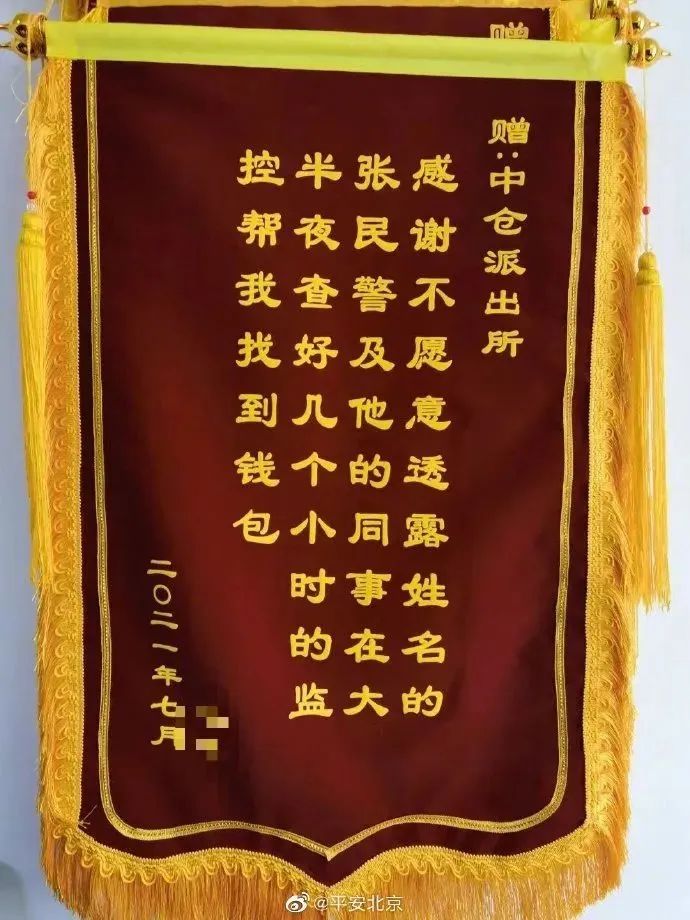 赠
赠:中仓派出所
感谢不愿意透露姓名的
张民警及他的同事在大
半夜查好几个小时的监
控帮我找到钱包
二〇二一年七月
@平安北京